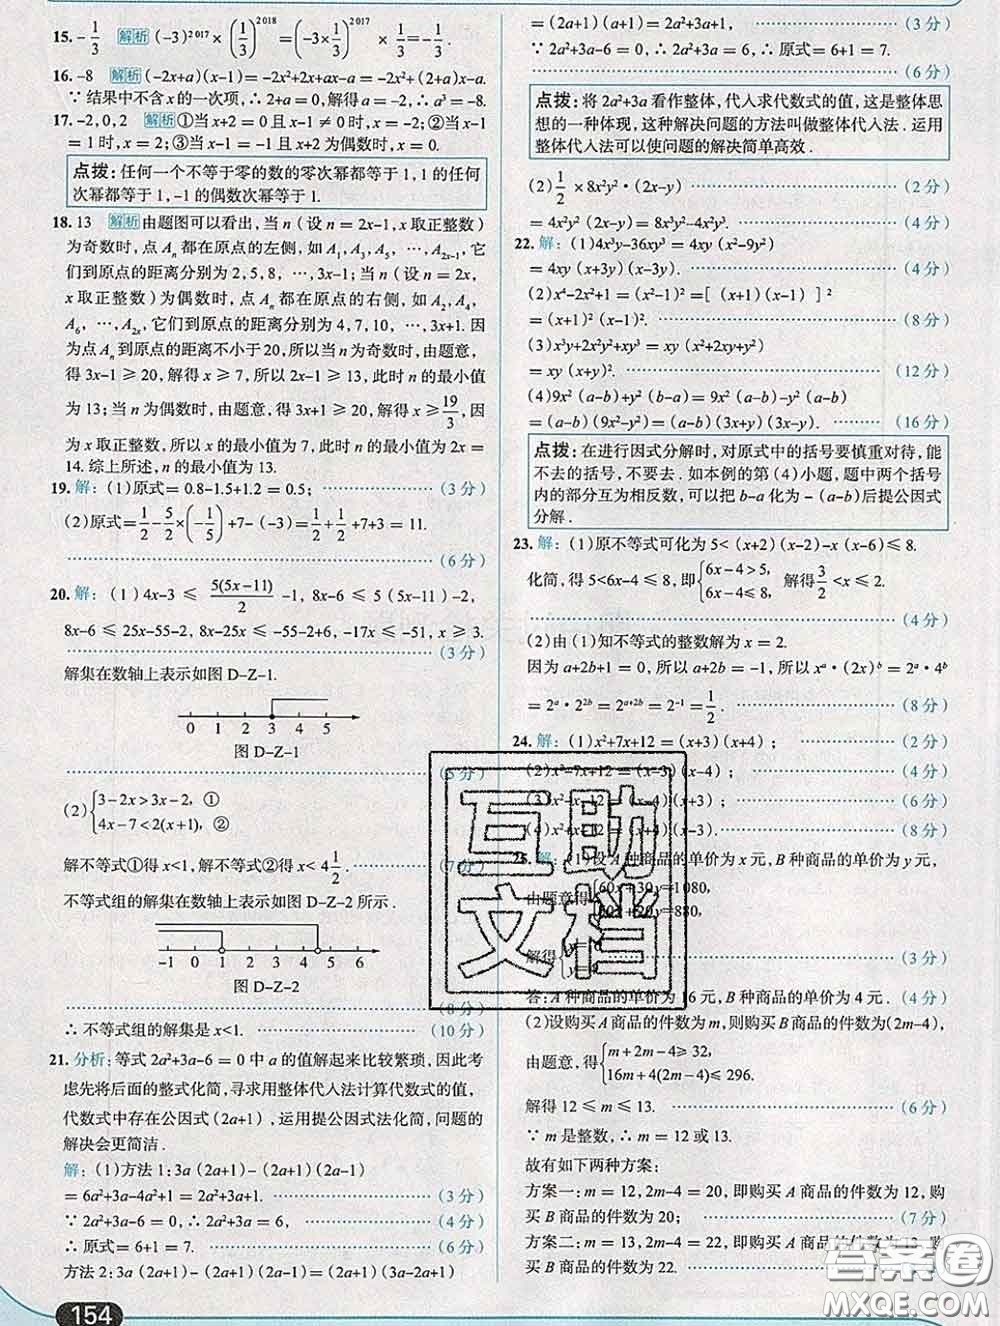 15. -1/3 解析 (-3)²⁰¹⁷×(1/3)²⁰¹⁸=(-3×1/3)²⁰¹⁷×1/3=-1/3.
16. -8 解析 (-2x+a)(x-1)=-2x²+2x+ax-a=-2x²+(2+a)x-a.
∵ 结果中不含x的一次项,∴ 2+a=0,解得a=-2,∴ a³=-8.
17. -2,0,2 解析 ①当x+2=0且x-1≠0时,x=-2;②当x-1
=1时,x=2;③当x-1=-1且x+2为偶数时,x=0.
点拨:任何一个不等于零的数的零次幂都等于1,1的任何
次幂都等于1,-1的偶数次幂等于1.
18. 13 解析 由题图可以看出,当n(设n=2x-1,x取正整数)
为奇数时,点Aₙ都在原点的左侧,如A₁,A₃,A₅,…,A₂ₓ₋₁,它
们到原点的距离分别为2,5,8,…,3x-1;当n(设n=2x,
x取正整数)为偶数时,点Aₙ都在原点的右侧,如A₂,A₄,
A₆,…,A₂ₓ,它们到原点的距离分别为4,7,10,…,3x+1.因
为点Aₙ到原点的距离不小于20,所以当n为奇数时,由题意,
得3x-1≥20,解得x≥7,所以2x-1≥13,此时n的最小值
为13;当n为偶数时,由题意,得3x+1≥20,解得x≥19/3,因
为x取正整数,所以x的最小值为7,此时n的最小值为2x=
14.综上所述,n的最小值为13.
19. 解:(1)原式=0.8-1.5+1.2=0.5; (3分)
(2)原式=1/2-5/2×(-1/5)+7-(-3)=1/2+1/2+7+3=11.
(6分)
20. 解:(1)4x-3≤5(5x-11)/2-1,8x-6≤5(5x-11)-2,
8x-6≤25x-55-2,8x-25x≤-55-2+6,-17x≤-51,x≥3.
(3分)
解集在数轴上表示如图D-Z-1.
0 1 2 3 4 5
图D-Z-1
(5分)
(2){3-2x>3x-2,①
4x-7<2(x+1),②
解不等式①得x<1,解不等式②得x<4 1/2. (7分)
不等式组的解集在数轴上表示如图D-Z-2所示.
-1 0 1 2 3 4 5 6
图D-Z-2
(8分)
∴ 不等式组的解集是x<1. (10分)
21. 分析:等式2a²+3a-6=0中a的值解起来比较繁琐,因此考
虑先将后面的整式化简,寻求用整体代入法计算代数式的值,
代数式中存在公因式(2a+1),运用提公因式法化简,问题的
解决会更简洁.
解:(1)方法1:3a(2a+1)-(2a+1)(2a-1)
=6a²+3a-4a²+1=2a²+3a+1. (3分)
∵ 2a²+3a-6=0,∴ 2a²+3a=6, (4分)
∴ 原式=6+1=7. (6分)
方法2:3a(2a+1)-(2a+1)(2a-1)=(2a+1)(3a-2a+1)
154
=(2a+1)(a+1)=2a²+3a+1. (3分)
∵ 2a²+3a-6=0,∴ 2a²+3a=6,∴ 原式=6+1=7.
(6分)
点拨:将2a²+3a看作整体,代入求代数式的值,这是整体思
想的一种体现,这种解决问题的方法叫做整体代入法.运用
整体代入法可以使问题的解决简单高效.
(2)1/2×8x²y²·(2x-y) (2分)
=4x²y²(2x-y)=8x³y²-4x²y³. (4分)
22. 解:(1)4x³y-36xy³=4xy(x²-9y²)
=4xy(x+3y)(x-3y). (4分)
(2)x⁴-2x²+1=(x²-1)²=[(x+1)(x-1)]²
=(x+1)²(x-1)². (8分)
(3)x³y+2x²y²+xy³=xy(x²+2xy+y²)
=xy(x+y)². (12分)
(4)9x²(a-b)+y²(b-a)=9x²(a-b)-y²(a-b)
=(a-b)(9x²-y²)=(a-b)(3x+y)(3x-y). (16分)
点拨:在进行因式分解时,对原式中的括号要慎重对待,能
不去的括号,不要去.如本例的第(4)小题,题中两个括号
内的部分互为相反数,可以把b-a化为-(a-b)后提公因式
分解.
23. 解:(1)原不等式可化为5<(x+2)(x-2)-x(x-6)≤8.
化简,得5<6x-4≤8,即{6x-4>5,6x-4≤8,解得3/2<x≤2.
(4分)
(2)由(1)知不等式的整数解为x=2.
因为a+2b+1=0,所以a+2b=-1,所以xᵃ·(2x)ᵇ=2ᵃ·4ᵇ
=2ᵃ·2²ᵇ=2ᵃ⁺²ᵇ=2⁻¹=1/2. (8分)
24. 解:(1)x²+7x+12=(x+3)(x+4); (2分)
(2)x²-7x+12=(x-3)(x-4); (4分)
(6分)
(8分)
25. 解:(1)设A种商品的单价为x元,B种商品的单价为y元,
由题意得{60x+30y=1080,
50x+20y=880,
解得 (3分)
答:A种商品的单价为16元,B种商品的单价为4元. (4分)
(2)设购买A商品的件数为m,则购买B商品的件数为(2m-4),
由题意,得{m+2m-4≥32,
16m+4(2m-4)≤296.
解得12≤m≤13. (6分)
∵ m是整数,∴ m=12或13.
故有如下两种方案:
方案一:m=12,2m-4=20,即购买A商品的件数为12,购
买B商品的件数为20; (7分)
方案二:m=13,2m-4=22,即购买A商品的件数为13,购
买B商品的件数为22.
互助
文档
答案卷
MXQE.COM